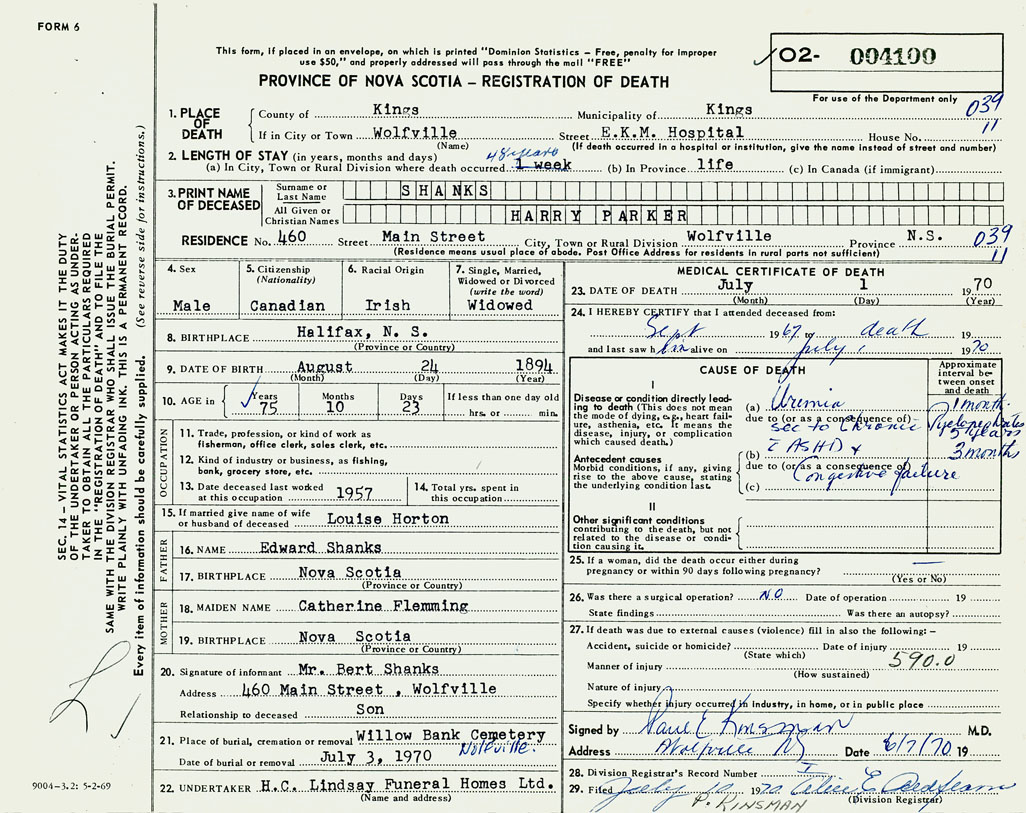 FORM 6
This form, if placed in an envelope, on which is printed "Dominion Statistics – Free, penalty for improper
use $50," and properly addressed will pass through the mail "FREE"
PROVINCE OF NOVA SCOTIA – REGISTRATION OF DEATH
02- 004100
For use of the Department only
039
11
1. PLACE OF DEATH
County of Kings Municipality of Kings
If in City or Town Wolfville Street E.K.M. Hospital House No.
(Name) (If death occurred in a hospital or institution, give the name instead of street and number)
2. LENGTH OF STAY (in years, months and days)
48 years
(a) In City, Town or Rural Division where death occurred 1 week (b) In Province life (c) In Canada (if immigrant)
3. PRINT NAME OF DECEASED
Surname or Last Name SHANKS
All Given or Christian Names HARRY PARKER
RESIDENCE No. 460 Street Main Street City, Town or Rural Division Wolfville Province N.S. 039
(Residence means usual place of abode. Post Office Address for residents in rural parts not sufficient) 11
4. Sex
Male
5. Citizenship
(Nationality)
Canadian
6. Racial Origin
Irish
7. Single, Married,
Widowed or Divorced
(write the word)
Widowed
8. BIRTHPLACE Halifax, N. S.
(Province or Country)
9. DATE OF BIRTH August 24 1894
(Month) (Day) (Year)
10. AGE in Years Months Days If less than one day old
75 10 23 hrs. or min.
OCCUPATION
11. Trade, profession, or kind of work as
fisherman, office clerk, sales clerk, etc.
12. Kind of industry or business, as fishing,
bank, grocery store, etc.
13. Date deceased last worked
at this occupation 1957
14. Total yrs. spent in
this occupation
15. If married give name of wife
or husband of deceased Louise Horton
FATHER
16. NAME Edward Shanks
17. BIRTHPLACE Nova Scotia
(Province or Country)
MOTHER
18. MAIDEN NAME Catherine Flemming
19. BIRTHPLACE Nova Scotia
(Province or Country)
20. Signature of informant Mr. Bert Shanks
Address 460 Main Street , Wolfville
Relationship to deceased Son
21. Place of burial, cremation or removal Willow Bank Cemetery
Wolfville.
Date of burial or removal July 3, 1970
22. UNDERTAKER H.C. Lindsay Funeral Homes Ltd.
(Name and address)
MEDICAL CERTIFICATE OF DEATH
23. DATE OF DEATH July 1 1970
(Month) (Day) (Year)
24. I HEREBY CERTIFY that I attended deceased from:
Sept 1967 to death 19
and last saw him alive on July 1 1970
CAUSE OF DEATH
Approximate
interval be-
tween onset
and death
I
Disease or condition directly lead-
ing to death (This does not
mean the mode of dying, e.g., heart fail-
ure, asthenia, etc. It means the
disease, injury, or complication
which caused death.)
(a) Uremia 1 month
due to (or as a consequence of)
sec to Chronic Pyelonephritis
5 years
Antecedent causes
Morbid conditions, if any, giving
rise to the above cause, stating
the underlying condition last.
(b) ASHD & 3 months
due to (or as a consequence of)
(c) Congestive failure
II
Other significant conditions
contributing to the death, but not
related to the disease or condi-
tion causing it.
25. If a woman, did the death occur either during
pregnancy or within 90 days following pregnancy? —
(Yes or No)
26. Was there a surgical operation? NO Date of operation 19
State findings Was there an autopsy?
27. If death was due to external causes (violence) fill in also the following: –
Accident, suicide or homicide? Date of injury 19
(State which) 590.0
Manner of injury
(How sustained)
Nature of injury
Specify whether injury occurred in industry, in home, or in public place
Signed by Paul E Kinsman M.D.
Address Wolfville NS Date 6/7/70 19
28. Division Registrar's Record Number
29. Filed July 10 1970
(Division Registrar)
P. KINSMAN
SEC. 14 – VITAL STATISTICS ACT MAKES IT THE DUTY
OF THE UNDERTAKER OR PERSON ACTING AS UNDER-
TAKER TO OBTAIN ALL THE PARTICULARS REQUIRED
IN THE "REGISTRATION OF DEATH" AND TO FILE THE
SAME WITH THE DIVISION REGISTRAR WHO SHALL ISSUE THE BURIAL PERMIT.
WRITE PLAINLY WITH UNFADING INK. THIS IS A PERMANENT RECORD.
Every item of information should be carefully supplied. (See reverse side for instructions.)
9004–3.2: 5-2-69